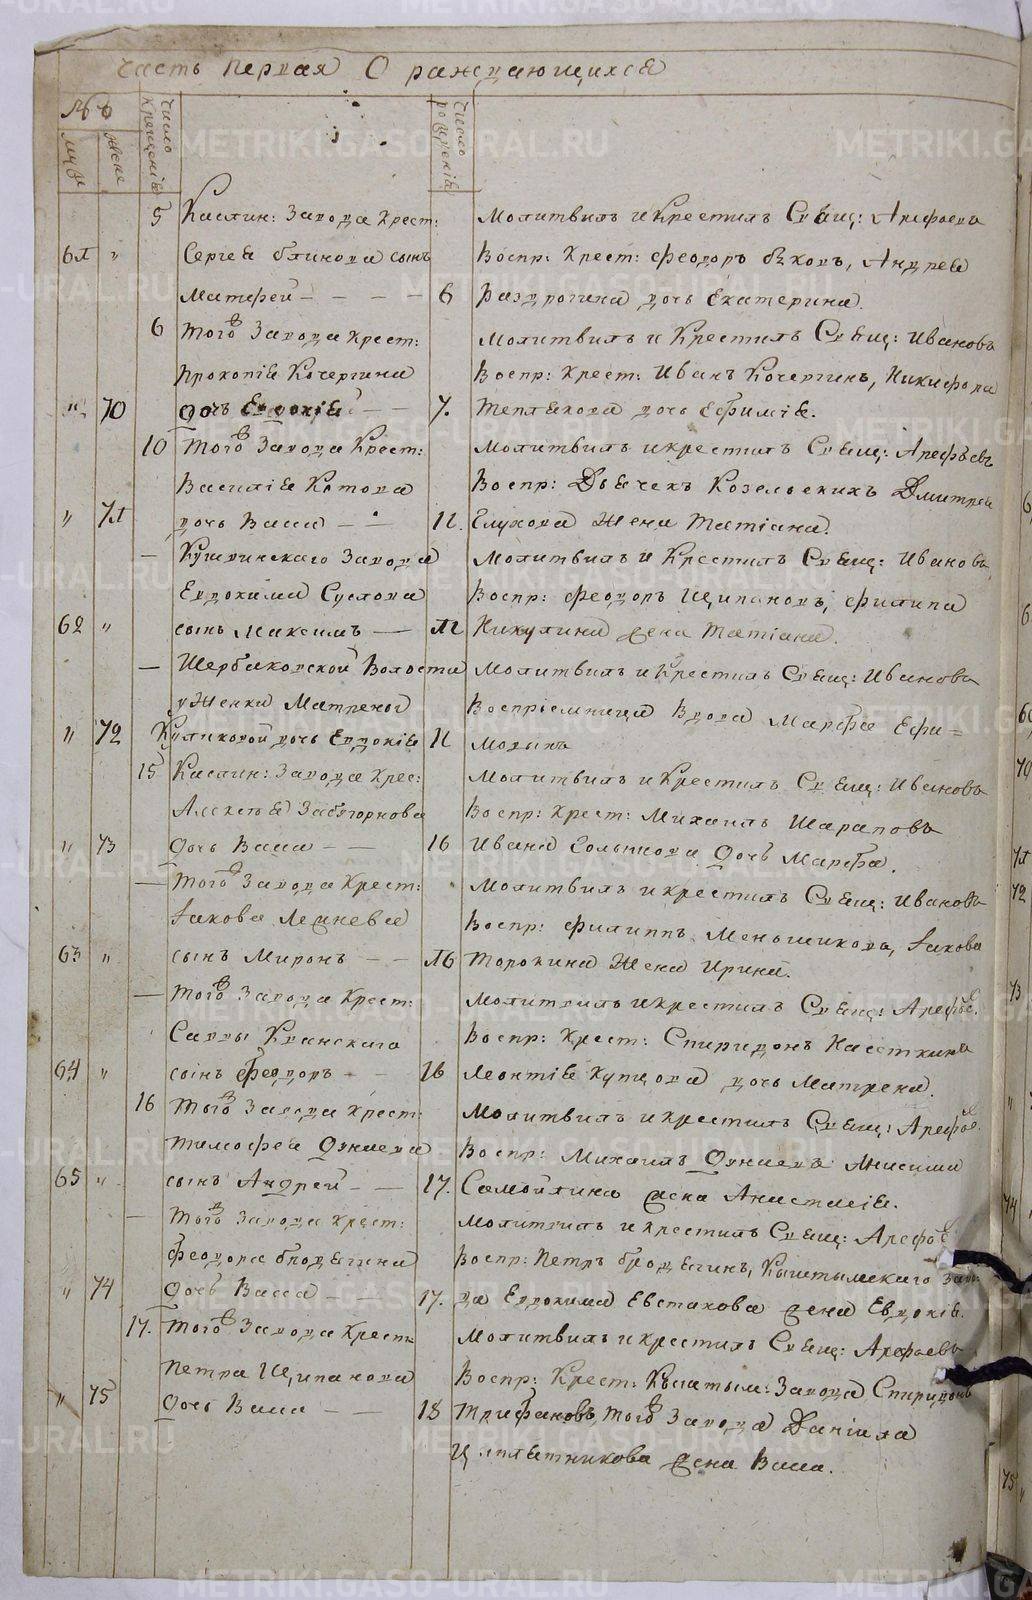 Часть первая О раждающихся
№
муж: жене
Число крещенія
Число рожденія
5 Каслин: Завода крест: Молитвилъ и Крестилъ Свящ: Арефьевъ
61 " Сергея блинова сынъ Воспр: Крест: Феодоръ Андрея
Матфей 6 дочь Екатерина.
6 Того Завода крест: Молитвилъ и Крестилъ Свящ: Ивановъ
Прокопія Кочергина Воспр: Крест: Иванъ Кочергинъ, Никифора
" 70 дочь Евдокія 7. Теплякова дочь Ефимія.
10 Того Завода Крест: Молитвилъ и крестилъ Свящ: Арефьевъ
Василія Котова Воспр: Дьячекъ Козельскихъ Дмитрея
" 71 дочь Васса 11. Глухова жена Татіана.
— Кушвинскаго Завода Молитвилъ и Крестилъ Свящ: Ивановъ
Евдокима Суслова Воспр: Феодоръ Щипановъ, Филипа
62 " сынъ Максимъ 11 Никулина жена Татіана.
— Щербаковской Волости Молитвилъ и Крестилъ Свящ: Ивановъ
у Женки Матрены Воспріемница Вдова Марфа Ефи=
" 72 Куликовой дочь Евдокія 11
15 Каслин: Завода крес: Молитвилъ и Крестилъ Свящ: Ивановъ
Алексея Воспр: Крест: Михаилъ Шараповъ
" 73 Дочь Васса 16 Ивана дочь Марфа.
— Того Завода Крест: Молитвилъ и крестилъ Свящ: Ивановъ
Іакова Воспр: Филиппъ Меньшикова, Іакова
63 " сынъ Миронъ 16 Торокина жена Ирина.
— Того Завода Крест: Молитвилъ и крестилъ Свящ: Арефьев
Саввы Воспр: Крест: Спиридонъ
64 " сынъ Феодоръ 16 Леонтія дочь Матрена.
16 Того Завода Крест: Молитвилъ и крестилъ Свящ: Арефьев
Тимофея Воспр: Михаилъ Анисима
65 " сынъ Андрей 17. Самойлина жена Анастасія.
— Того Завода крест: Молитвилъ и крестилъ Свящ: Арефьев
Феодора Бродягина Воспр: Петръ Бродягинъ, Кыштымскаго Заво-
" 74 Дочь Васса 17. да Евдокима Евстакова жена Евдокія.
17. Того Завода Крест: Молитвилъ и крестилъ Свящ: Арефьевъ
Петра Щипанова Воспр: Крест: Кыштым: Завода Спиридонъ
" 75 Дочь Васса 18 Трифановъ, того Завода Даніила
жена Васса.